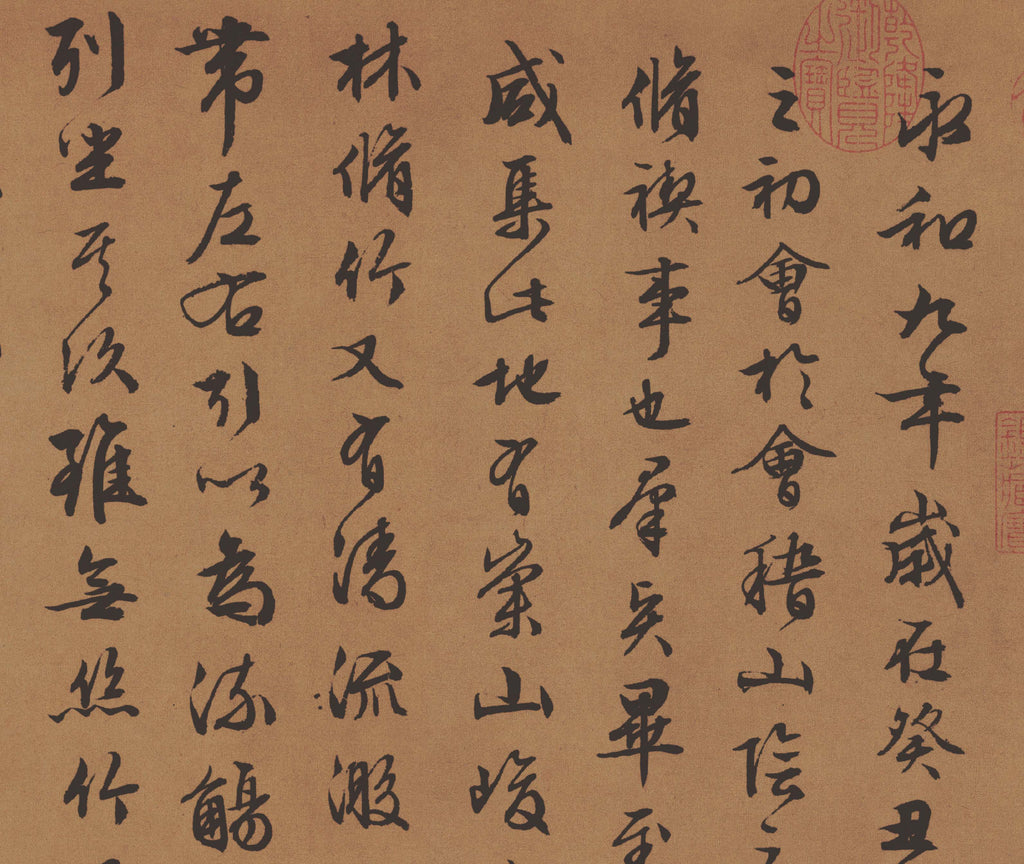 乾隆御覽之寶
永和九年歲在癸丑
之初會於會稽山陰之
脩禊事也羣賢畢至
咸集此地有崇山峻
林脩竹又有清流激
帶左右引以為流觴
列坐其次雖無絲竹